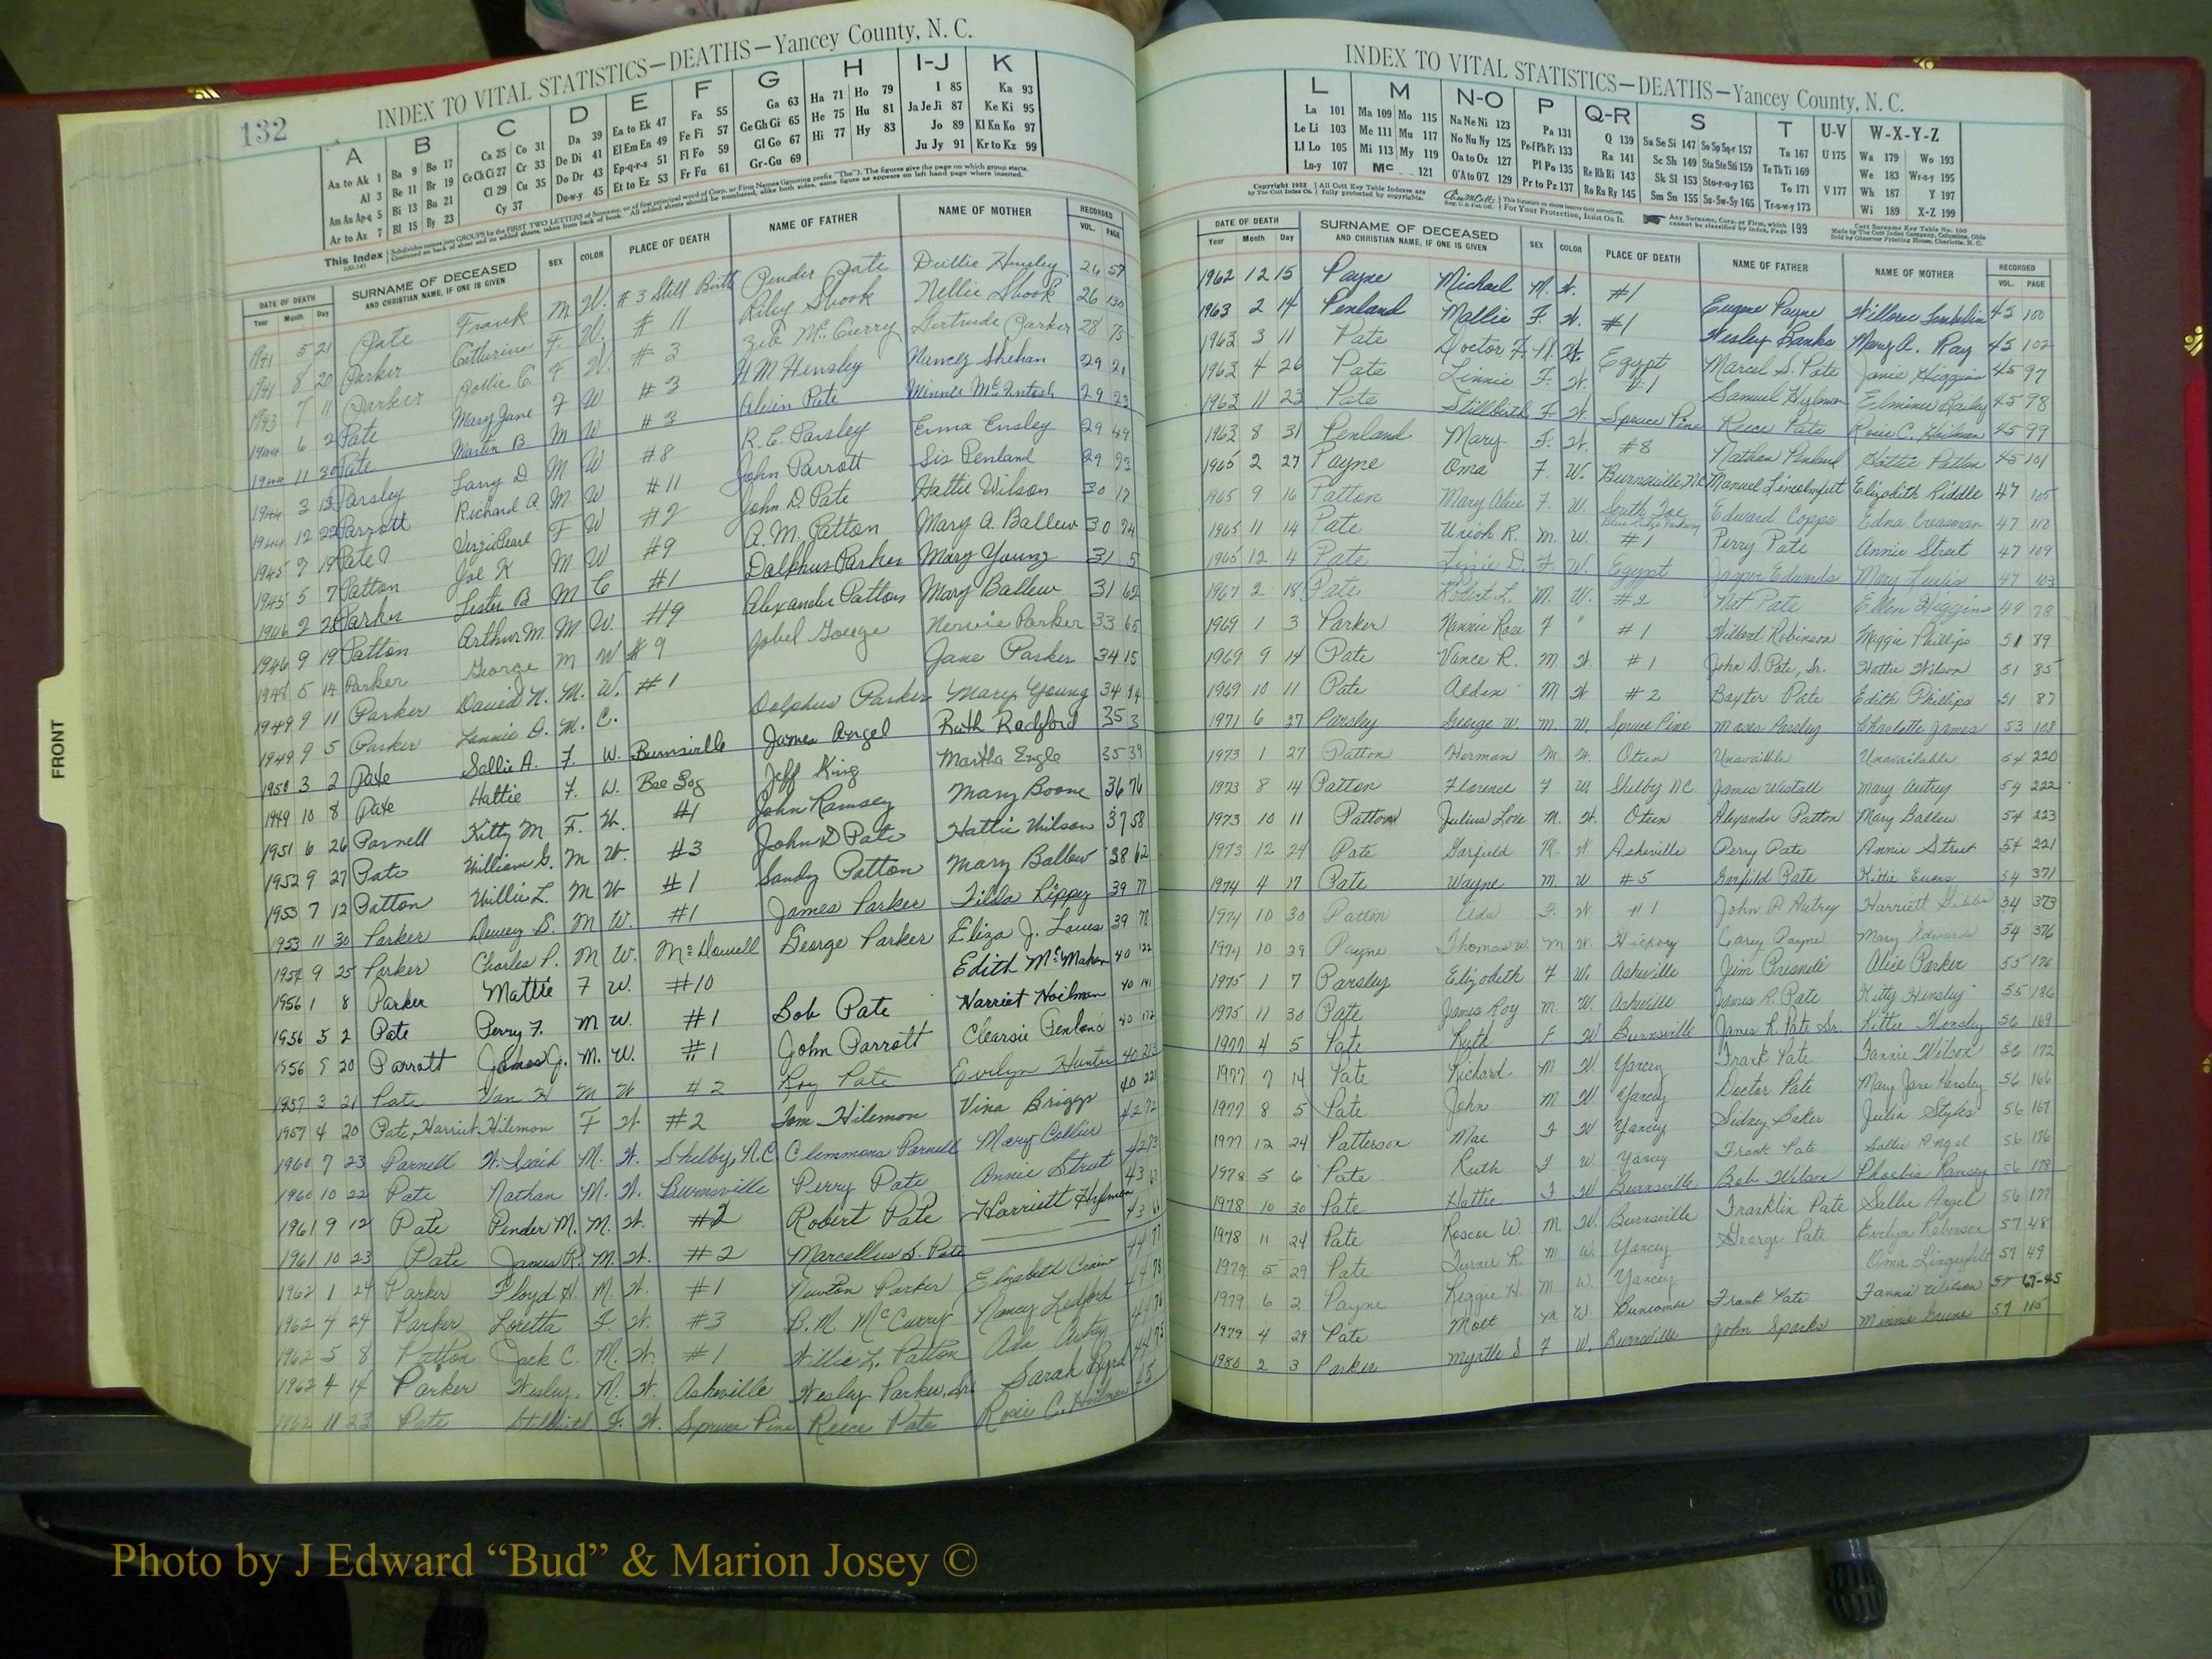 132
INDEX TO VITAL STATISTICS—DEATHS—Yancey County, N. C.
A B C D E F G H I-J K
Aa to Ak 1 Ba 9 Bo 17 Ca 25 Co 31 Da 39 Ea to Ek 47 Fa 55 Ga 63 Ha 71 Ho 79 I 85 Ka 93
Al 3 Be 11 Br 19 Ce Ch Ci 27 Cr 33 De Di 41 El Em En 49 Fe Fi 57 Ge Gh Gi 65 He 75 Hu 81 Ja Je Ji 87 Ke Ki 95
Am An Ap-q 5 Bi 13 Bu 21 Cl 29 Cu 35 Do Dr 43 Ep-q-r-s 51 Fl Fo 59 Gl Go 67 Hi 77 Hy 83 Jo 89 Kl Kn Ko 97
Ar to Az 7 Bl 15 By 23 Cy 37 Du-w-y 45 Et to Ez 53 Fr Fu 61 Gr-Gu 69 Ju Jy 91 Kr to Kz 99
DATE OF DEATH SURNAME OF DECEASED SEX COLOR PLACE OF DEATH NAME OF FATHER NAME OF MOTHER RECORDED
Year Month Day AND CHRISTIAN NAME, IF ONE IS GIVEN VOL. PAGE
1941 5 21 Pate Frank M W. #3 Still Birth Pender Pate Dullie Hensley 26 57
1941 8 20 Parker Catherine F. W. #11 Riley Shook Nellie Shook 26 130
1943 7 11 Parker Pollie C. F. W. #3 Zeb McCurry Gertrude Parker 28 75
1944 6 2 Pate Mary Jane F W #3 H M Hensley Nancy Shehan 29
1944 11 30 Pate Martin B M W #3 Alvin Pate Minnie McIntosh 29 23
1944 3 13 Parsley Larry D M W #8 R. C. Parsley Erma Ensley 29 49
1944 12 22 Parrott Richard A. M W #11 John Parrott Sis Penland 29 93
1945 9 19 Pate Virgie Pearl F W #2 John D. Pate Hattie Wilson 30 17
1945 5 7 Patton Joe K M W #9 A. M. Patton Mary A. Ballew 30 94
1946 2 Parker Lester B M C #1 Dolphus Parker Mary Young 31 5
1946 9 19 Patton Arthur M. M W. #9 Alexander Patton Mary Ballew 31 62
1948 5 14 Parker George M W #9 Jobel Gouge Nervie Parker 33 65
1949 9 11 Parker David N. M. W. #1 Jane Parker 34 15
1949 9 5 Parker Lennie D. M. C. Dolphus Parker Mary Young 34 94
1950 3 2 Pate Sallie A. F. W. Burnsville James Angel Ruth Radford 35 3
1949 10 8 Pate Hattie F. W. Bee Log Jeff King Martha Engle 35 39
1951 6 26 Parnell Kitty M F. W. #1 John Ramsey Mary Boone 36 76
1952 9 27 Pate William G. M W. #3 John D Pate Hattie Wilson 37 58
1953 7 12 Patton Willie L. M W #1 Sandy Patton Mary Ballew 38 62
1953 11 30 Parker Dewey S. M W. #1 James Parker Tilda Rippey 39 77
1954 9 25 Parker Charles P. M W. McDowell George Parker Eliza J. Laws 39 78
1956 1 8 Parker Mattie F W. #10 Edith McMahan 40 122
1956 5 2 Pate Perry F. M W. #1 Bob Pate Harriet Hoilman 40 141
1956 9 20 Parrott James J. M. W. #1 John Parrott Clearsie Penland 40 172
1957 3 21 Pate Van H M W #2 Roy Pate Evelyn Hunter 40 213
1957 4 20 Pate, Harriet Hilemon F W #2 Tom Hilemon Vina Briggs 40 221
1960 7 23 Parnell W. Spaid M. W. Shelby, N.C. Clemmons Parnell Mary Collier 42 72
1960 10 22 Pate Nathan M. W. Burnsville Perry Pate Annie Street 42 73
1961 9 12 Pate Pender M. M. W. #2 Robert Pate Harriett Hylemon 43
1961 10 23 Pate James R. M. W. #2 Marcellus S. Pate 43
1962 1 24 Parker Floyd H. M. W. #1 Newton Parker Elizabeth Crain 44 77
1962 4 24 Parker Loretta F. W. #3 B. M. McCurry Nancy Ledford 44 78
1962 5 8 Patton Jack C. M. W. #1 Willie L. Patton Ada Autry 44 76
1962 4 14 Parker Wesley M. W. Asheville Wesley Parker, Sr. Sarah Byrd 44 75
1962 11 23 Pate Stillbirth F. W. Spruce Pine Reece Pate Rosie C. Hoilman 45
INDEX TO VITAL STATISTICS—DEATHS—Yancey County, N. C.
L M N-O P Q-R S T U-V W-X-Y-Z
La 101 Ma 109 Mo 115 Na Ne Ni 123 Pa 131 Q 139 Sa Se Si 147 So Sp Sq-r 157 Ta 167 U 175 Wa 179 Wo 193
Le Li 103 Me 111 Mu 117 No Nu Ny 125 Pe-f Ph Pi 133 Ra 141 Sc Sh 149 Sta Ste Sti 159 Te Th Ti 169 We 183 Wr-u-y 195
Ll Lo 105 Mi 113 My 119 Oa to Oz 127 Pl Po 135 Re Rh Ri 143 Sk Sl 153 Sto-r-u-y 163 To 171 V 177 Wh 187 Y 197
Lu-y 107 Mc 121 O'A to O'Z 129 Pr to Pz 137 Ro Ru Ry 145 Sm Sn 155 Su-Sw-Sy 165 Tr-u-w-y 173 Wi 189 X-Z 199
DATE OF DEATH SURNAME OF DECEASED SEX COLOR PLACE OF DEATH NAME OF FATHER NAME OF MOTHER RECORDED
Year Month Day AND CHRISTIAN NAME, IF ONE IS GIVEN VOL. PAGE
1962 12 15 Payne Michael M. W. #1 Eugene Payne Willoree 45 100
1963 2 14 Penland Mollie F. W. #1 Wesley Banks Mary A. Ray 45 102
1963 3 11 Pate Doctor F. M. W. Egypt Marcel S. Pate Janie Higgins 45 97
1963 4 26 Pate Linnie F. W. #1 Samuel Hylemon Elminie Bailey 45 98
1963 11 23 Pate Stillbirth F. W. Spruce Pine Reece Pate Rosie C. Hoilman 45 99
1963 8 31 Penland Mary F. W. #8 Nathan Penland Hattie Patton 45 101
1965 2 27 Payne Oma F. W. Burnsville, NC Manuel Linebarfult Elizabith Riddle 47 105
1965 9 16 Patton Mary Alice F. W. South Toe Edward Copps Edna Creasman 47 110
Blue Ridge Parkway
1965 11 14 Pate Union R. M. W. #1 Perry Pate Annie Street 47 109
1965 12 4 Pate Lizzie D. F. W. Egypt Jasper Edwards Mary Lewis 47 103
1967 2 18 Pate Robert L. M. W. #2 Nat Pate Ellen Higgins 49 78
1969 1 3 Parker Nannie Rose F " #1 Wilbert Robinson Maggie Phillips 51 89
1969 9 14 Pate Vance R. M W #1 John D. Pate, Sr. Hattie Wilson 51 85
1969 10 11 Pate Alden M W #2 Baxter Pate Edith Phillips 51 87
1971 6 27 Parsley George W. M. W. Spruce Pine Moses Parsley Charlotte James 53 108
1973 1 27 Patton Herman M. W. Oteen Unavailble Unavailable 54 220
1973 8 14 Patton Florence F W Shelby NC James Westall Mary Autrey 54 222
1973 10 11 Patton Julius Love M. W. Oteen Alexander Patton Mary Ballew 54 223
1973 12 24 Pate Garfield M. W. Asheville Perry Pate Annie Street 54 221
1974 4 17 Pate Wayne M. W #5 Garfield Pate Kittie Evans 54 371
1974 10 30 Patton Ada F. W #1 John P. Autrey Harriett Gibbs 54 373
1974 10 29 Payne Thomas W. M W. Hickory Carey Payne Mary Edwards 54 376
1975 1 7 Parsley Elizabeth F W. Asheville Jim Presnell Alice Parker 55 176
1975 11 30 Pate James Roy M. W. Asheville James R. Pate Kitty Hensley 55 186
1977 4 5 Pate Ruth F W Burnsville James R. Pate Sr. Kittie Hensley 56 169
1977 7 14 Pate Richard M W. Yancey Frank Pate Fannie Wilson 56 172
1977 8 5 Pate John M W Yancey Doctor Pate Mary Jane Hensley 56 166
1977 12 24 Patterson Mae F W Yancey Sidney Baker Julia Styles 56 167
1978 5 6 Pate Ruth F W Yancey Frank Pate Sallie Angel 56 176
1978 10 30 Pate Hattie F W Burnsville Bob Wilson Phoebia Ramsey 56 178
1978 11 24 Pate Roscoe W. M. W. Burnsville Franklin Pate Sallie Angel 56 177
1979 5 29 Pate Turner R. M W. Yancey George Pate Evelyn Roberson 57 48
1979 6 2 Payne Reggie H. M W. Yancey Oma Lingerfelt 57 49
1979 4 29 Pate Molt M W. Buncombe Frank Pate Fannie Wilson 57 67-45
1980 2 3 Parker Myrtle S F W. Burnsville John Sparks Minnie 57 115
FRONT
Photo by J Edward “Bud” & Marion Josey ©